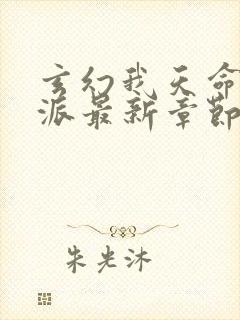 玄幻我天命
派最新章節
朱光沐